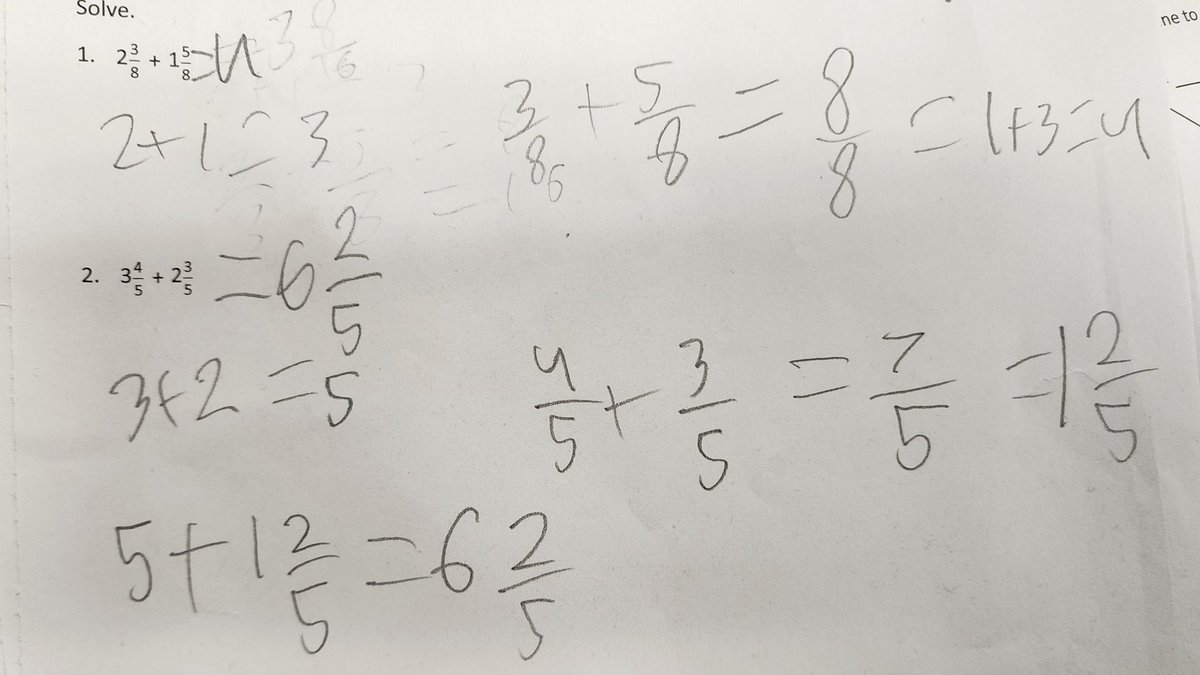 Solve.
ne to
1. 2 3/8 + 1 5/8 = 4
2+1=3
3/8 + 5/8 = 8/8 = 1+3=4
2. 3 4/5 + 2 3/5 = 6 2/5
3+2=5
4/5 + 3/5 = 7/5 = 1 2/5
5+1 2/5 = 6 2/5